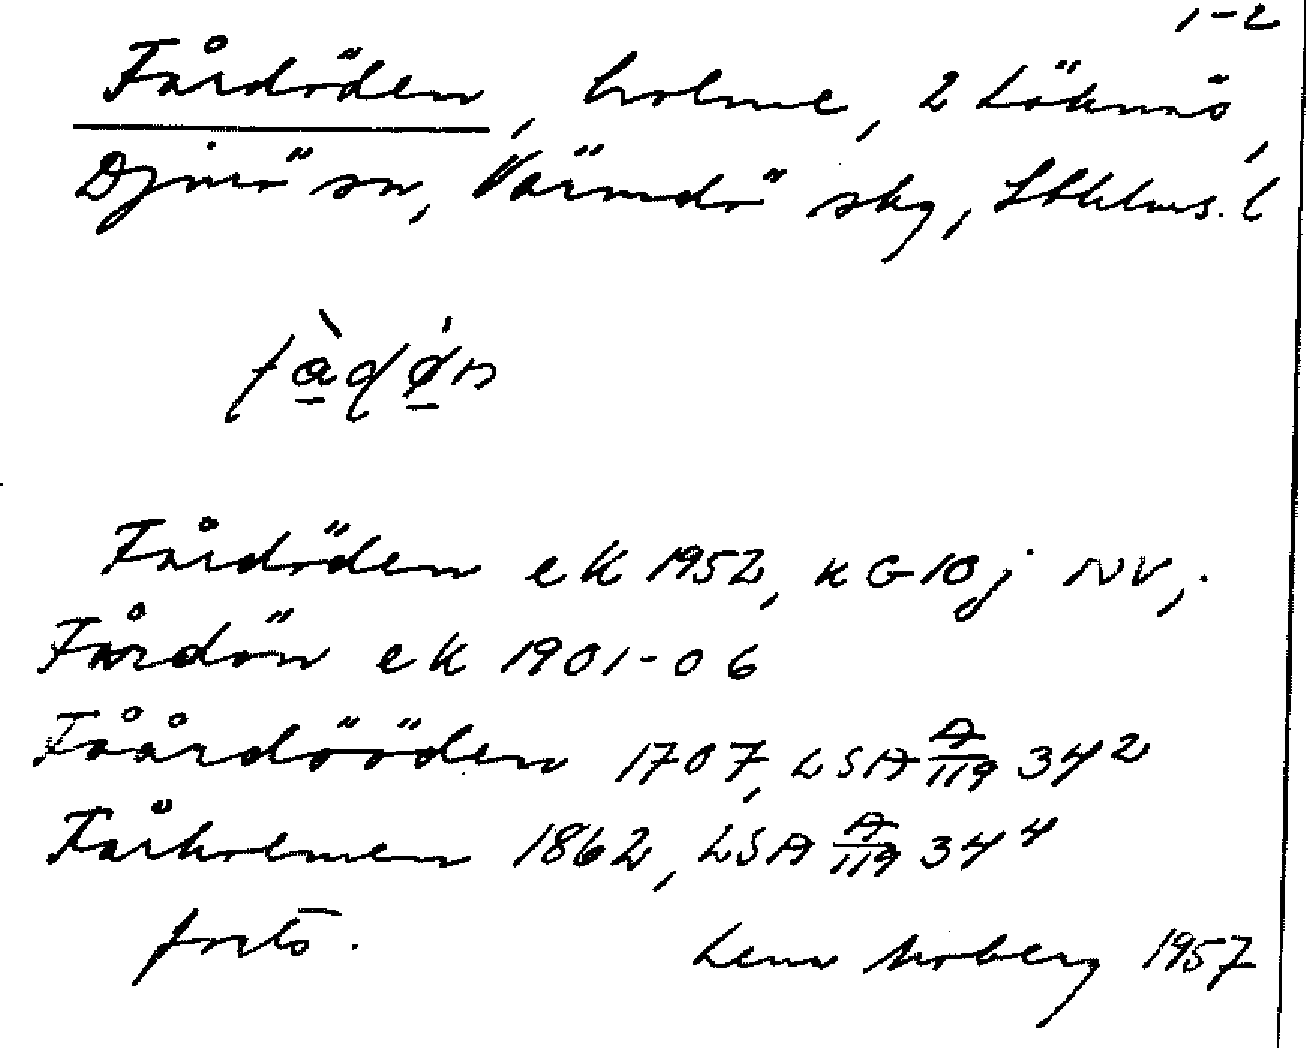 1-2
Fårdöden, holme, 2 Löknäs,
Djurö sn, Värmdö skg, Sthlms. l
Fårdöden ek 1952, kG10j NV,.
Fårdön ek 1901-06
Föårdööden 1707, LSA A/119 34²
Fårholmen 1862, LSA A/119 34⁴
forts. Lena Moberg 1957